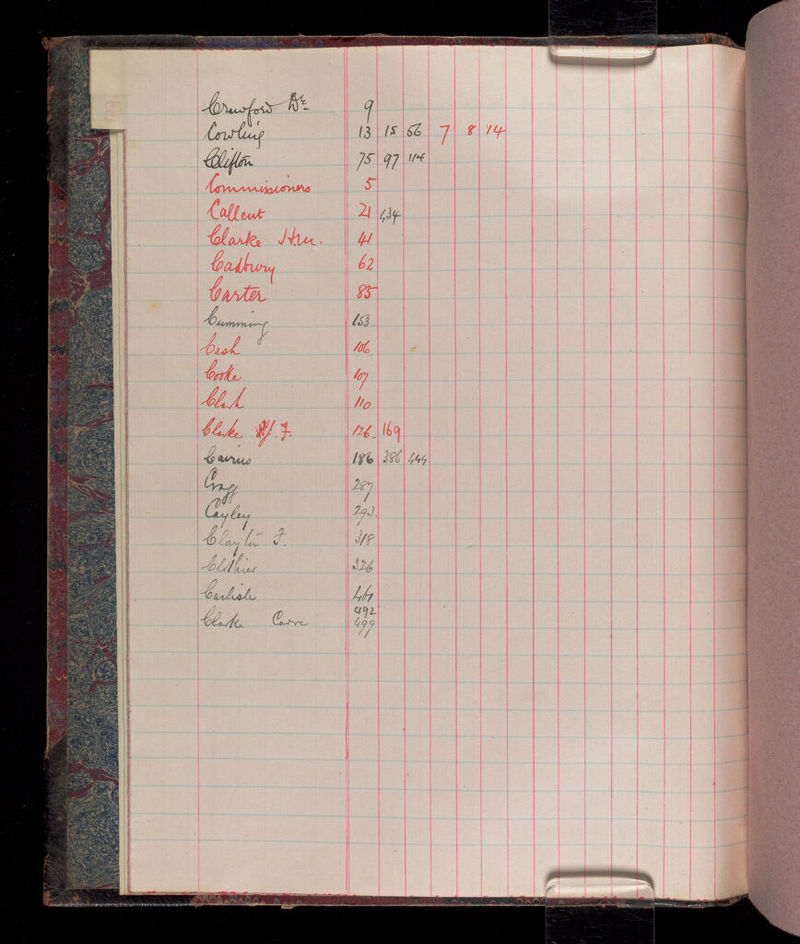 Crawford Dr 9
Cowling 13 15 56 7 8 14
Clifton 75 97 114
Commissioners 5
Callcut 21 434
Clarke 41
Cadbury 62
Carter 85
Cumming 153
Cash 106
Cooke 107
Clark 110
Clarke F. 126. 169
Cairns 186 386 444
Cragg 287
Cayley 293.
Clayton F. 318
Clothier 326
Carlisle 461
492
Clarke 499